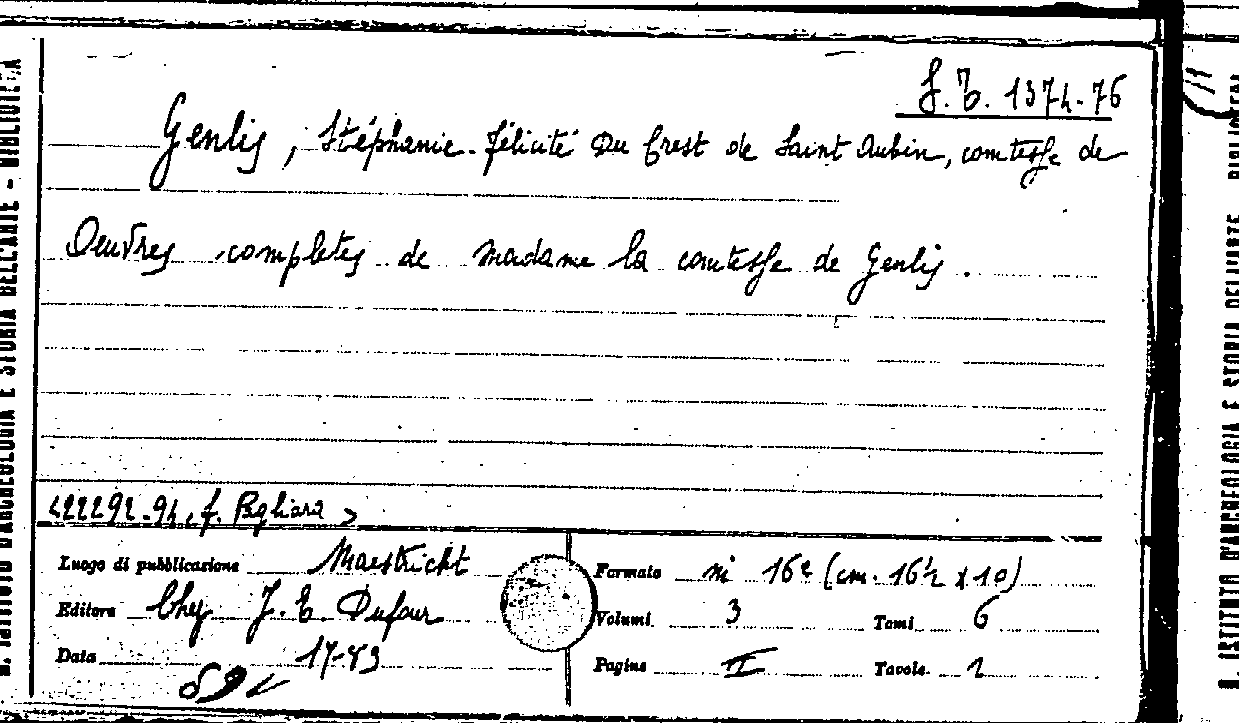 f. T. 1374-76
Genlis, Stéphanie-félicité Du Crest de Saint Aubin, comtesse de
Oeuvres completes de Madame la comtesse de Genlis.
<22292-94, f. Pagliara>
Luogo di pubblicazione Maestricht
Formato in 16º (cm. 16½ x 10)
Editore Chez J. E. Dufour
Volumi 3 Tomi 6
Data 17-83
Pagine II Tavole. 1
R. ISTITUTO D'ARCHEOLOGIA E STORIA DELL'ARTE - BIBLIOTECA
R. ISTITUTO D'ARCHEOLOGIA E STORIA DELL'ARTE BIBLIOTECA